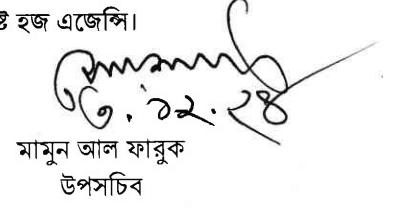 হজ এজেন্সি।
৩.১২.২৪
মামুন আল ফারুক
উপসচিব